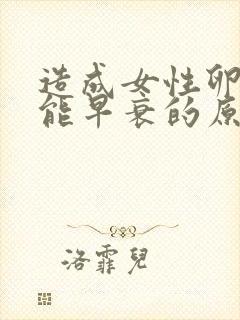 造成女性卵
能早衰的原
洛霏兒